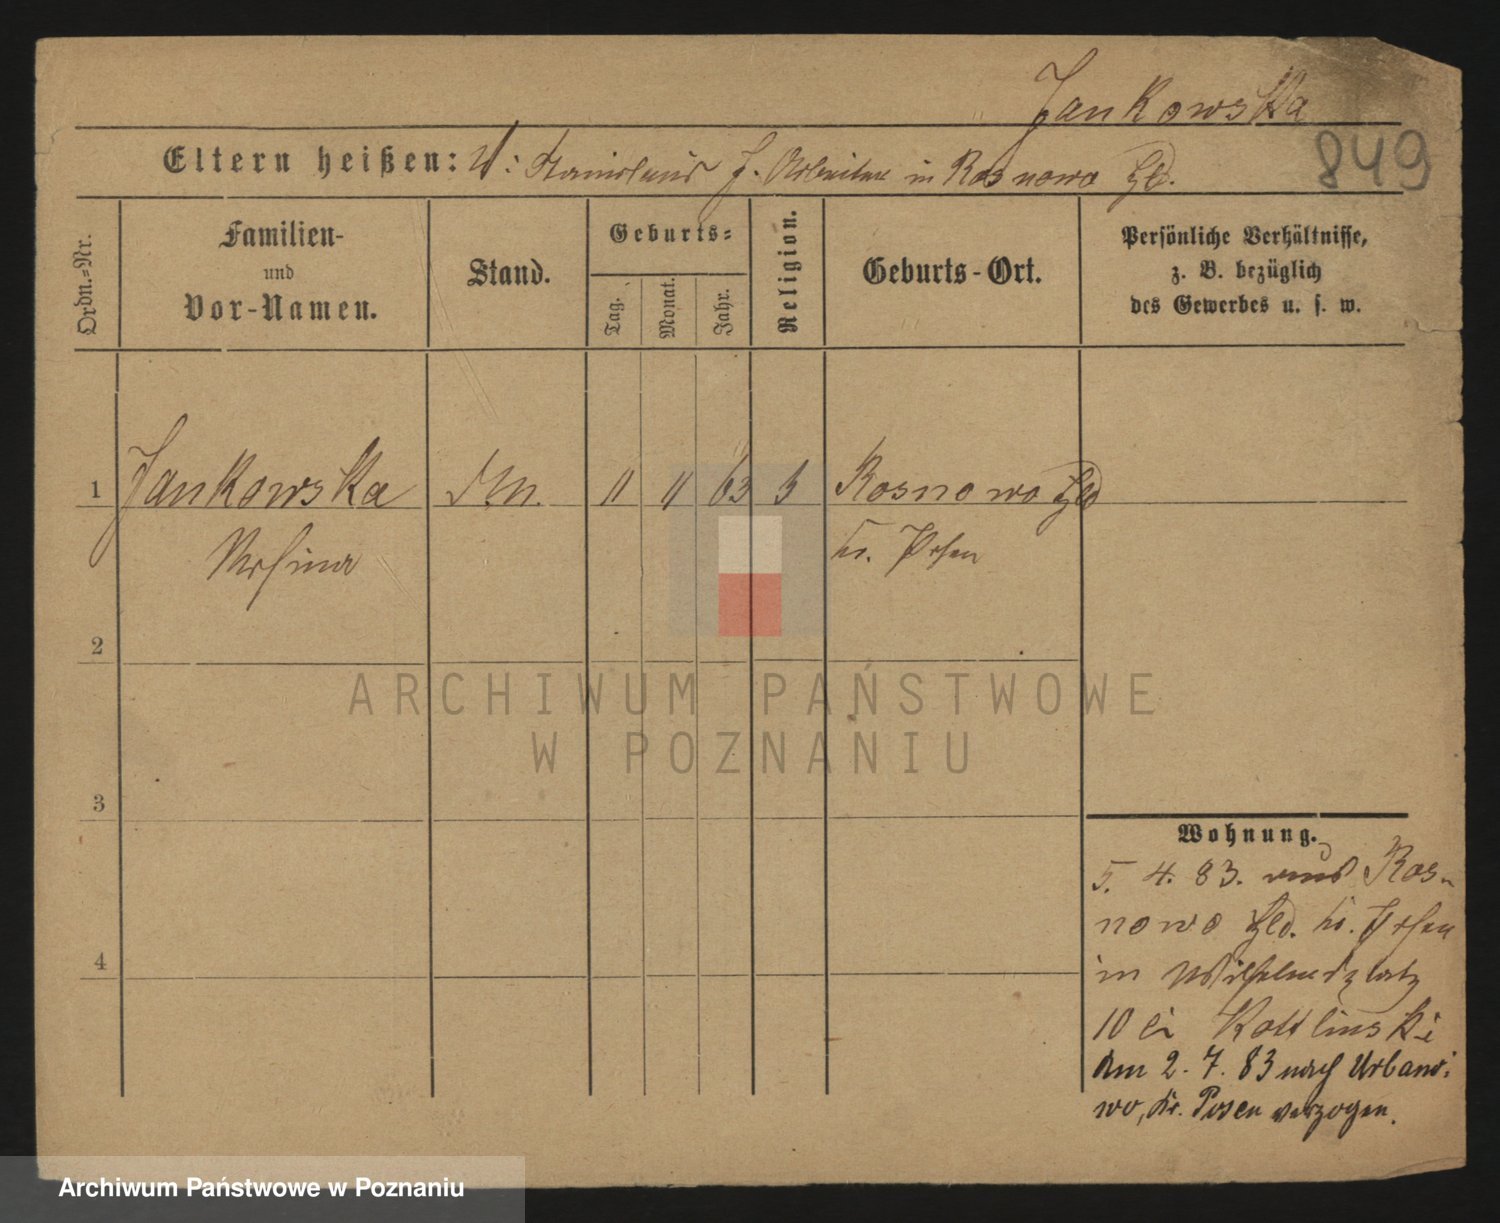 Jankowska
849
Eltern heißen: V: Stanislaus J. Arbeiter in Rosnowo Hld.
Ordn.=Nr.
Familien-
und
Vor-Namen.
Stand.
Geburts=
Tag.
Monat.
Jahr.
Religion.
Geburts-Ort.
Persönliche Verhältnisse,
z. B. bezüglich
des Gewerbes u. s. w.
1 Jankowska 11 11 63 Rosnowo Hld
Kr. Posen
2
ARCHIWUM PAŃSTWOWE
W POZNANIU
3
4
Wohnung.
5. 4. 83. aus Ros-
nowo Hld. Kr. Posen
in Wilhelmsplatz
10 Kottlinski
Am 2. 7. 83 nach Urbano-
wo, Kr. Posen verzogen.
Archiwum Państwowe w Poznaniu